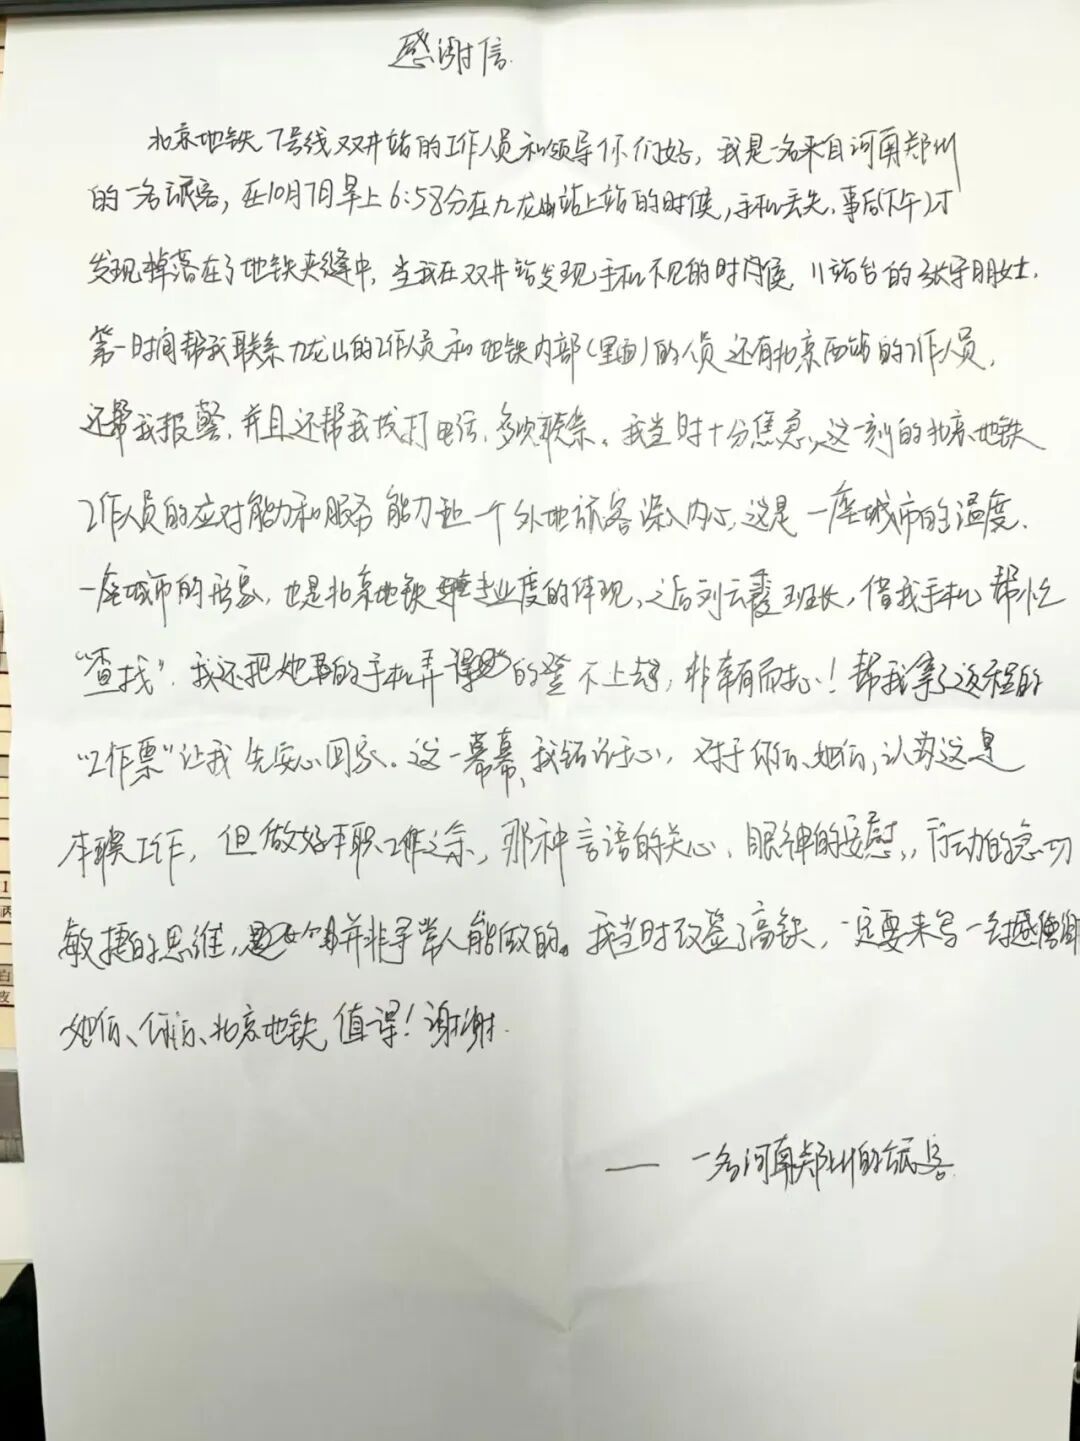 感谢信
北京地铁7号线双井站的工作人员和领导你们好，我是一名来自河南郑州
的一名旅客，在10月7日早上6:58分在九龙山站上站的时候，手机丢失，事后下午2时
发现掉落在了地铁夹缝中，当我在双井站发现手机不见的时候，站台的张宇朋女士，
第一时间帮我联系九龙山的工作人员和地铁内部（里面）的人员还有北京西站的工作人员，
还帮我报警，并且还帮我拨打电话，多次联系。我当时十分焦急，这一刻的北京地铁
工作人员的应对能力和服务能力让一个外地旅客深入内心，这是一座城市的温度，
一座城市的形象，也是北京地铁专业度的体现，之后刘云霞班长，借我手机帮忙
“查找”，我还把她的手机弄得的登不上去，非常有耐心！帮我拿了返程的
“工作票”让我先安心回家。这一幕幕，我铭记于心，对于你们、她们，认为这是
本职工作，但做好本职工作之余，那种言语的关心、眼神的安慰，行动的急切
敏捷的思维，并非寻常人能做的。我当时改签了高铁，一定要来写一封感谢
她们、你们、北京地铁，值得！谢谢．
—— 一名河南郑州的旅客